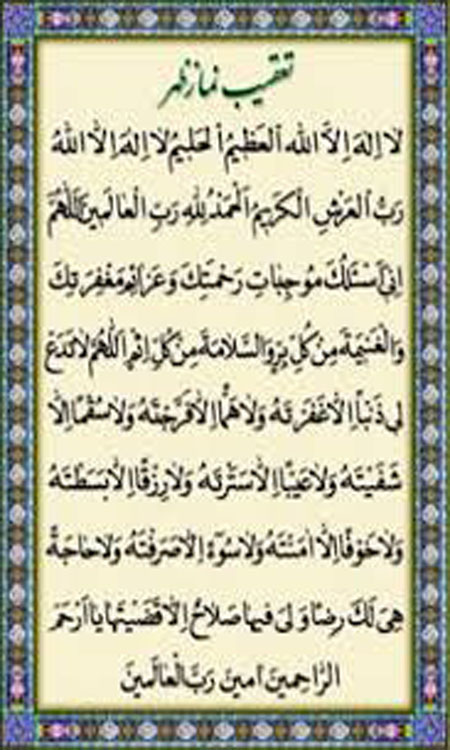 تعقیب نماز ظهر
لا اِلهَ اِلاَّ اللهُ الْعَظيمُ الْحَليمُ لا اِلهَ اِلاَّ اللهُ
رَبُّ الْعَرْشِ الْكَريمُ اَلْحَمْدُ لِلّهِ رَبِّ الْعالَمينَ اَللّهُمَّ
اِنّى اَسْئَلُكَ مُوجِباتِ رَحْمَتِكَ وَ عَزائِمَ مَغْفِرَتِكَ
وَالْغَنيمَةَ مِنْ كُلِّ بِرٍّ وَالسَّلامَةَ مِنْ كُلِّ اِثْمٍ اَللّهُمَّ لا تَدَعْ
لى ذَنْباً اِلاّ غَفَرْتَهُ وَلا هَمّاً اِلاّ فَرَّجْتَهُ وَلا سُقْماً اِلاّ
شَفَيْتَهُ وَلا عَيْباً اِلاّ سَتَرْتَهُ وَلا رِزْقاً اِلاّ بَسَطْتَهُ
وَلا خَوْفاً اِلاّ امَنْتَهُ وَلا سُوءً اِلاّ صَرَفْتَهُ وَلا حاجَةً
هِىَ لَكَ رِضًا وَلِىَ فيها صَلاحٌ اِلاّ قَضَيْتَها يا اَرْحَمَ
الرّاحِمينَ امينَ رَبَّ الْعالَمينَ